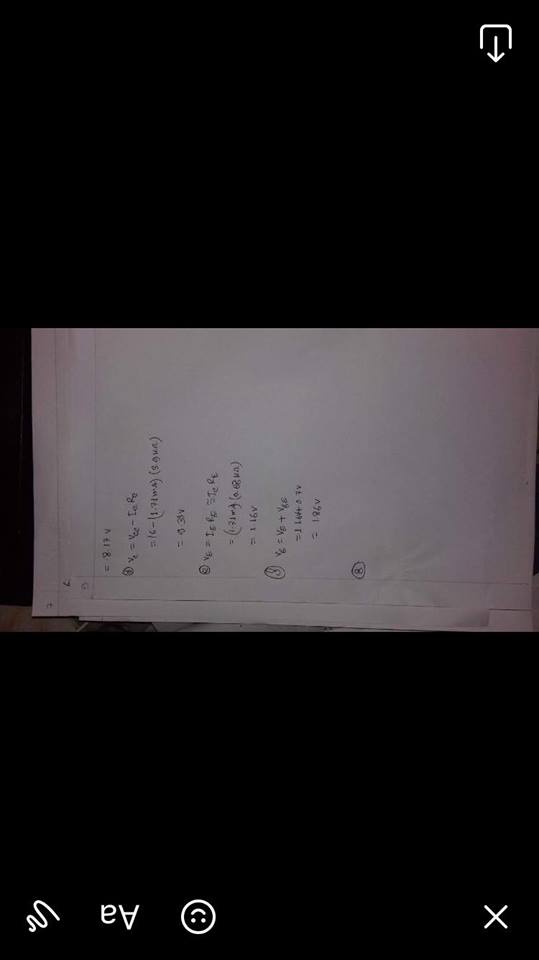 = 8.17V
d) Vc = Vcc - IcRc
= 16-(1.71mA)(3.9kΩ)
= 9.33V
e) VE = IERE ≅ IcRE
= (1.71mA)(0.68kΩ)
= 1.16V
f) VB = VE + VBE
= 1.16+0.7V
= 1.86V
8
Aa